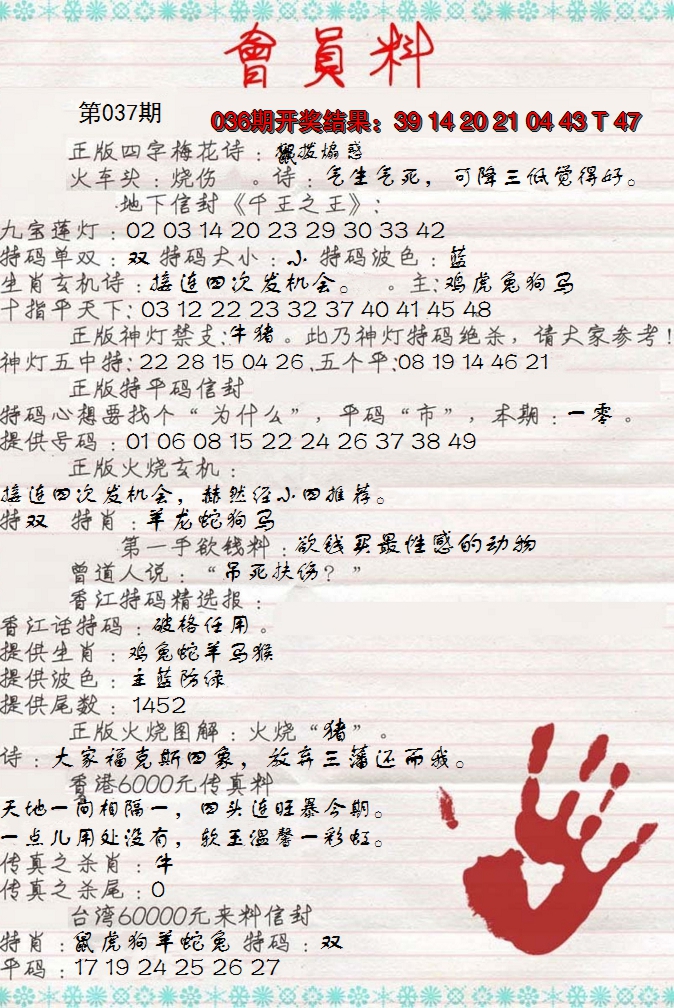 會員料
第037期
036期开奖结果：39 14 20 21 04 43 T 47
正版四字梅花诗：鼠拨煽惑
火车头：烧伤 。诗：气生气死，可降三低觉得好。
地下信封《千王之王》：
九宝莲灯：02 03 14 20 23 29 30 33 42
特码单双：双 特码大小：小 特码波色：蓝
生肖玄机诗：接连四次发机会。 。主：鸡虎兔狗马
十指平天下：03 12 22 23 32 37 40 41 45 48
正版神灯禁支：牛猪。此乃神灯特码绝杀，请大家参考！
神灯五中特：22 28 15 04 26.五个平：08 19 14 46 21
正版特平码信封
特码心想要找个“为什么”，平码“市”，本期：一零。
提供号码：01 06 08 15 22 24 26 37 38 49
正版火烧玄机：
接连四次发机会，赫然经小四推荐。
特双 特肖：羊龙蛇狗马
第一手欲钱料：欲钱买最性感的动物
曾道人说：“吊死扶伤？”
香江特码精选报：
香江话特码：破格任用。
提供生肖：鸡兔蛇羊马猴
提供波色：主蓝防绿
提供尾数：1452
正版火烧图解：火烧“猪”。
诗：大家福克斯四象，放弃三藩还而我。
香港6000元传真料
天地一间相隔一，四头连旺暴今期。
一点儿用处没有，软玉温馨一彩虹。
传真之杀肖：牛
传真之杀尾：0
台湾60000元来料信封
特肖：鼠虎狗羊蛇兔 特码：双
平码：17 19 24 25 26 27